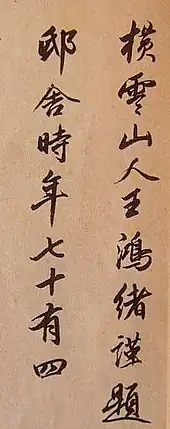 橫雲山人王鴻緒謹題
邸舍時年七十有四